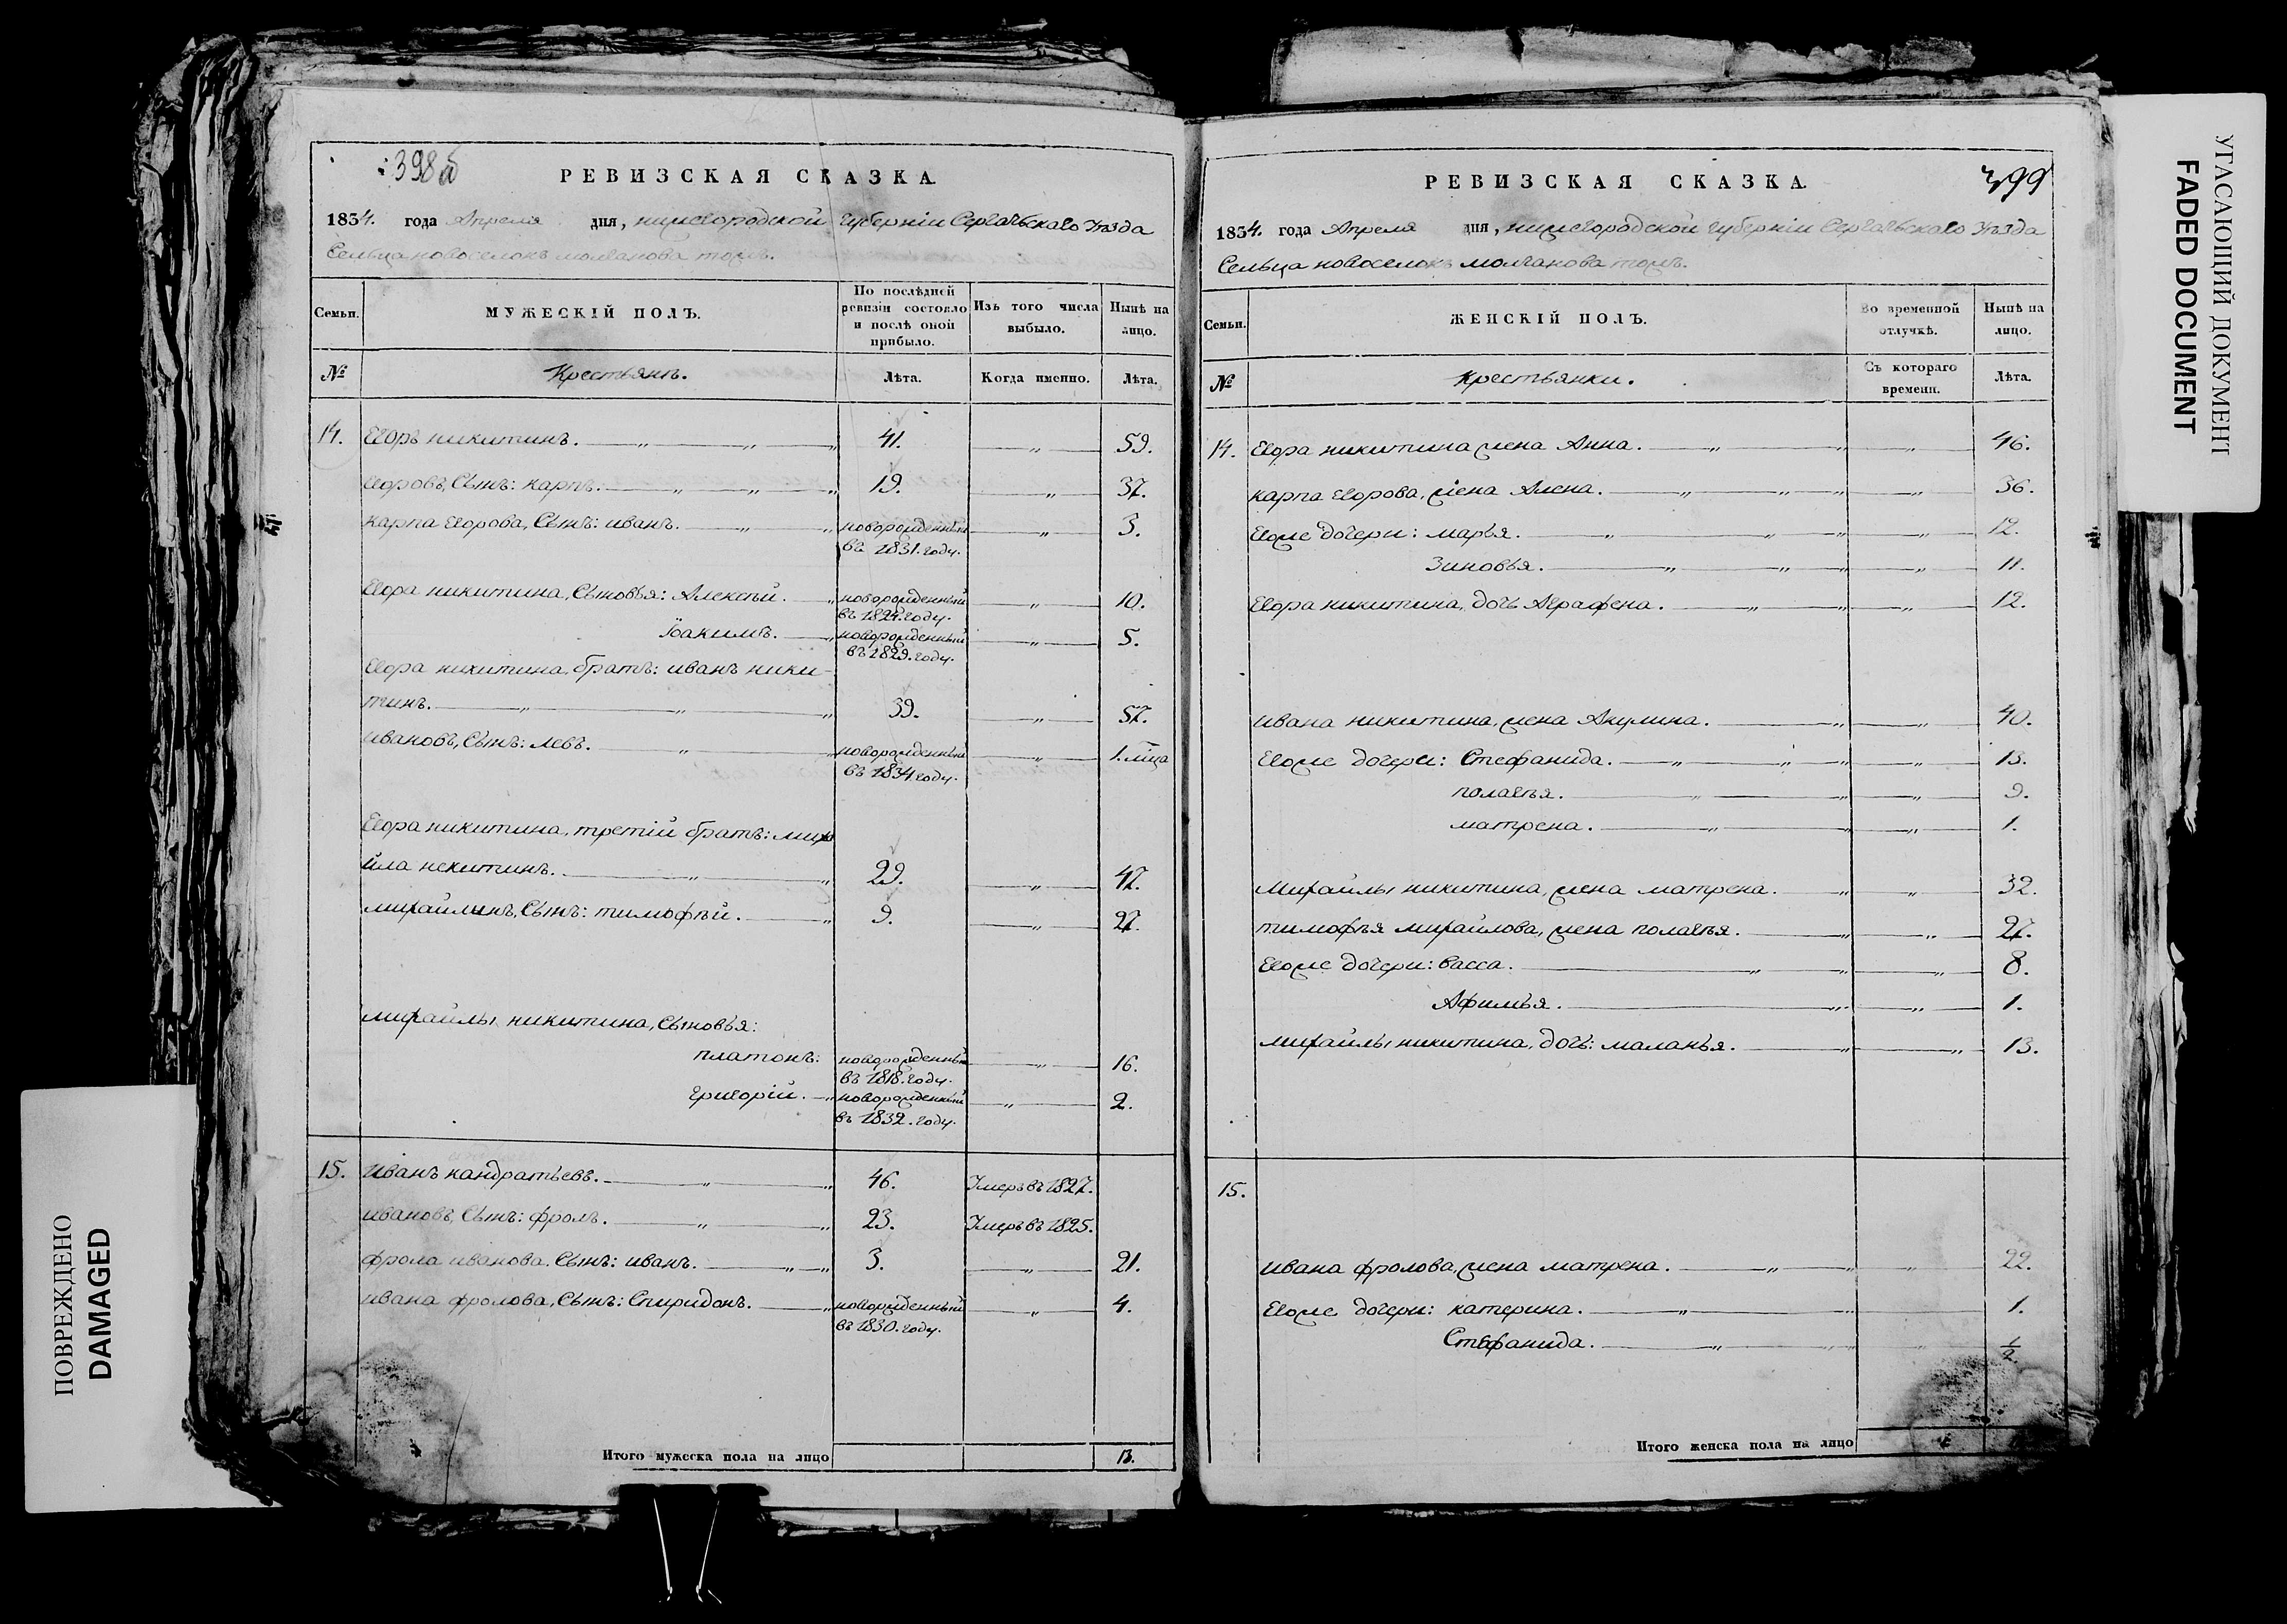 398об
РЕВИЗСКАЯ СКАЗКА.
1834. года Апреля дня, нижегородской губернiи Сергачьскаго Уѣзда
Сельца новоселокъ молчанова томъ.
Семьи. МУЖЕСКIЙ ПОЛЪ. По послѣдней ревизiи состояло и послѣ оной прибыло. Изъ того числа выбыло. Нынѣ на лицо.
№ Крестьянъ. Лѣта. Когда именно. Лѣта.
14. Егоръ никитинъ. 41. 59.
Егоровъ, Сынъ: карпъ. 19. 37.
карпа Егорова, Сынъ: иванъ. новорожденный 3.
въ 1831. году.
Егора никитина, Сыновья: Алексѣй. новорожденный 10.
въ 1824. году.
Iоакимъ. новорожденный 5.
въ 1829. году.
Егора никитина, братъ: иванъ ники-
тинъ. 39. 57.
ивановъ, Сынъ: левъ. новорожденный 1. мца
въ 1834 году.
Егора никитина, третiй братъ: миха
йла некитинъ. 29. 47.
михайлынъ, Сынъ: тимофѣй. 9. 27.
михайлы никитина, Сыновья:
платонъ: новорожденный 16.
въ 1818. году.
григорiй. новорожденный 2.
въ 1832. году.
15. Иванъ кандратьевъ. 46. Умеръ въ 1827.
ивановъ, Сынъ: фролъ. 23. Умеръ въ 1825.
фрола иванова. Сынъ: иванъ. 3. 21.
ивана фролова, Сынъ: Спиридонъ. новорожденный 4.
въ 1830. году.
Итого мужеска пола на лицо 13.
399
РЕВИЗСКАЯ СКАЗКА.
1834. года Апреля дня, нижегородской губернiи Сергачьскаго Уѣзда
Сельца новоселокъ молчанова томъ.
Семьи. ЖЕНСКIЙ ПОЛЪ. Во временной отлучкѣ. Нынѣ на лицо.
№ крестьянки. Съ котораго времени. Лѣта.
14. Егора никитина жена Анна. 46.
карпа Егорова, жена Алена. 36.
Егоже дочери: марья. 12.
Зиновья. 11.
Егора никитина, дочь Аграфена. 12.
ивана никитина, жена Акулина. 40.
Егоже дочери: Стефанида. 13.
полагѣя. 9.
матрена. 1.
Михайлы никитина, жена матрена. 32.
тимофѣя михайлова, жена полагѣя. 27.
Егоже дочери: Васса. 8.
Афимья. 1.
михайлы никитина, дочь: маланья. 13.
15.
ивана фролова, жена матрена. 22.
Егоже дочери: катерина. 1.
Стефанида. 1/2.
Итого женска пола на лицо
ПОВРЕЖДЕНО
DAMAGED
УГАСАЮЩИЙ ДОКУМЕНТ
FADED DOCUMENT